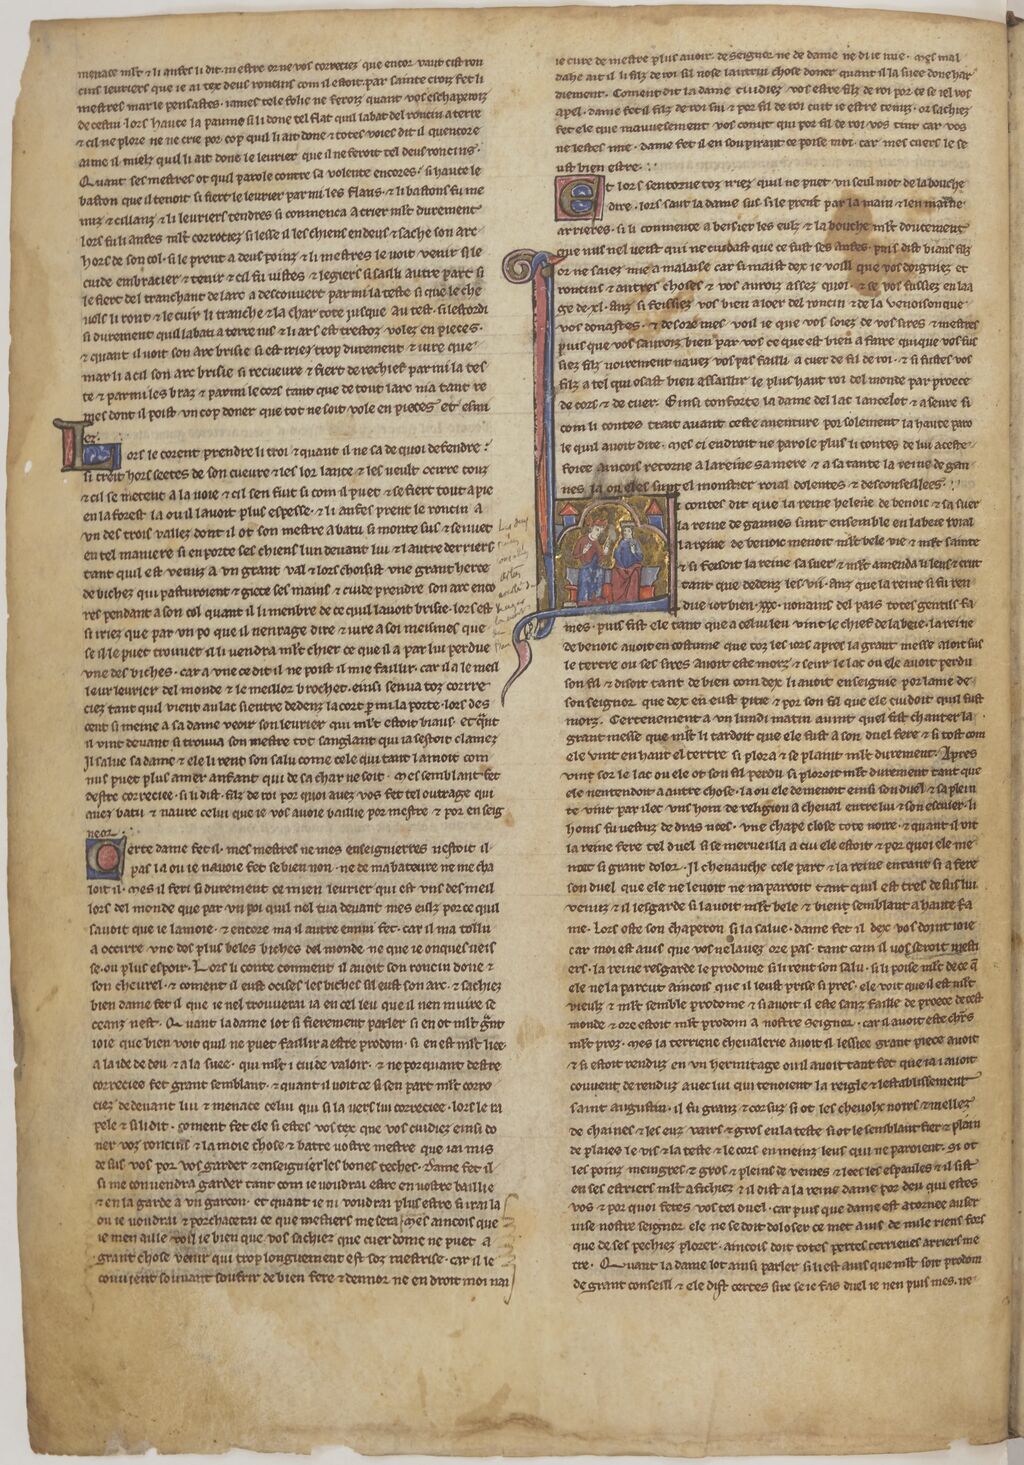 menace mlt & li anfes li dit. mestre or ne vos correciez que encor vaut cist .ii.
tius leuriers que ie ai tex deus roncins com il estoit. par sainte croiz fet li
mestres mar le pensastes. iames tele folie ne feroiz quant vos eschaperoiz
de cestui. lors hauce la paume si li done tel flat quil labat del roncin a terre
& cil ne plore ne ne crie por cop quil li ait done & totes voies dit il quencore
aime il mielz quil li ait done le leurier que il ne feroit tel deus roncins.
Quant ses mestres ot quil parole contre sa volente encores. si hauce le
baston que il tenoit si fiert le leurier par mi les flans. & li bastons fu me
nuz & cillanz & li leuriers tendres si commenca a crier mlt durement
lors fu li anfes mlt correciez si lesse il les chiens endeus & sache son arc
hors de son col. si le prent a deus poinz & li mestres le voit venir si le
cuide embracier & tenir & cil fu vistes & legiers si sailli autre part si
le fiert del tranchant de larc a descouvert par mi la teste si que les che
uols li ront & le cuir li tranche & la char tote iusque au test. si lestordi
si durement quil labati a terre ius & li ars est trestoz volez en pieces.
& quant il voit son arc brisie si est iriez trop durement & iure que
mar li a cil son arc brisie si recueure & fiert de rechief par mi la tes
te & par mi les braz & par mi le cors tant que de tout larc na tant re
mes dont il poist un cop doner que tot ne soit vole en pieces et esmi
ez.
Lors le corent prendre li troi & quant il ne sa de quoi defendre.
si tret hors seetes de son cueure & les lor lance & les veult ocirre touz
& cil se metent a la voie & cil sen fuit si com il puet & se fiert tout a pie
en la forest la ou il lavoit plus espesse. & li anfes prent le roncin a
vn des trois vallez dont il ot son mestre abatu si monte sus & sen vet
en tel maniere si en porte ses chiens lun devant lui & lautre derriers
tant quil est venuz a un grant val & lors choisist vne grant herte
de biches qui pasturoient & giete ses mains & cuide prendre son arc enco
res pendant a son col quant il li menbre de ce quil lavoit brisie. lors est
si iriez que par vn po que il nenrage dire & iure a soi meismes que
se il le puet trouver il li vendra mlt chier ce que il a par lui perdue
vne des biches. car a vne ce dit il ne poist il mie faillir. car il a le meil
leur leurier del monde & le meillor brochet. einsi senva toz correc
ciez tant quil vient au lac si entre dedenz la cort par mi la porte. lors des
cent si meine a sa dame veoir son leurier qui mlt estoit biaus. et quant
il vint devant si trouva son mestre tot sanglant qui ia sestoit clamez
Il salue sa dame & ele li rent son salu come cele qui tant lamoit com
nus puet plus amer anfant qui de sa char ne soit. mes semblant fet
destre correciee. si li dist. filz de roi por quoi avez vos fet tel outrage qui
avez batu & navre celui que ie vos avoie baillie por mestre & por enseig
neor.
Certe dame fet il. mes mestres ne mes enseignierres nestoit il
pas la ou ie navoie fet se bien non. ne de ma bateure ne me cha
loit il. mes il feri si durement ce mien leurier qui est uns des meil
lors del monde que par vn poi quil nel tua devant mes eulz por ce quil
savoit que ie lamoie. & encore ma il autre ennui fet. car il ma tollu
a occirre vne des plus beles biches del monde ne que ie onques veis
se. ou plus espoir. Lors li conte comment il avoit son roncin done &
son chevrel. & coment il eust ocises les biches sil eust son arc. & sachiez
bien dame fet il que ie nel trouverai ia en cel leu que il nen muire se
ceanz nest. Quant la dame lot si fierement parler si en ot mlt grant
ioie que bien voit quil ne puet faillir a estre prodom. si en est mlt liee.
a laide de deu & a la suee. qui mlt i cuide valoir. & ne por quant destre
correciee fet grant semblant. & quant il voit ce si sen part mlt corro
ciez de devant lui & menace celui qui si la vers lui correciee. lors le ra
pele & si li dit. coment fet ele si estes vos tex que vos cuidiez einsi do
ner voz roncins & la moie chose & batre vostre mestre que iai mis
desus vos por vos garder & enseignier les bones teches. dame fet il
si me convendra garder tant com ie voudrai estre en vostre baillie
& en la garde a vn garcon. et quant ie ni voudrai plus estre si irai la
ou ie voudrai & porchacerai ce que mestiers me sera. mes aincois que
ie men aille voil ie bien que vos sachiez que cuer dome ne puet a
grant chose venir qui trop longuement est soz mestrise. car il le
convient souvant soufrir de bien fere & dennor ne en droit moi nai
ie cure de mestre plus avoir. de seignor ne de dame ne di ie mie. mes mal
dahe ait il li filz de roi sil nose lautrui chose doner quant il la suee done har
diement. Coment dit la dame cuidiez vos estre filz de roi por ce se iel vos
apel. dame fet il filz de roi sui & por fil de roi cuit ie estre tenuz. or sachiez
fet ele que mauvesement vos conut qui por fil de roi vos tint car vos
ne lestes mie. dame fet il en soupirant ce poise moi. car mes cuers le se
ust bien estre.
Et lors sen torne toz iriez quil ne puet un seul mot de la bouche
dire. lors saut la dame sus si le prent par la main & len maine
arrieres. si li commence a besier les eulz & la bouche mlt doucement
que nus nel veist qui ne cuidast que ce fust ses anfes. puis dist biaus filz
or ne saiez mie a malaise car si maist dex ie voill que vos doigniez et
roncins & autres choses & vos auroiz assez quoi. & se vos fussiez en laa
ge de .xl. anz si feissiez vos bien a loer del roncin & de la venoison que
vos donastes. & desoremes voil ie que vos soiez de vos sires & mestres
puis que vos savroiz bien par vos ce que est bien a faire qui que vos fus
siez filz voirement navez vos pas failli a cuer de fil de roi. & si fustes vos
filz a tel qui osast bien assaillir le plus haut roi del monde par proece
de cors & de cuer. Einsi conforte la dame del lac lancelot & aseure si
com li contes trait avant ceste aventure por solement la haute paro
le quil avoit dite. mes ci endroit ne parole plus li contes de lui a ceste
foiee aincois retorne a la reine sa mere & a sa tante la reine de gau
nes la ou eles sunt el monstier roial dolentes & desconseillees.
Li contes dit que la reine helene de benoic & sa suer
la reine de gaunes sunt ensemble en labeie roial
la reine de benoic menoit mlt bele vie & mlt sainte
& si fesoit la reine sa suer & mlt amenda li leus & crut
tant que dedenz les .vii. anz que la reine si fu ren
due i ot bien .xxx. nonains del pais totes gentils fa
mes. puis fist ele tant que a celui leu vint le chies de labeie. la reine
de benoic avoit en costume que toz les iors apres la grant messe aloit sus
le tertre ou ses sires avoit este morz & seur le lac ou ele avoit perdu
son fil & disoit tant de bien com dex li avoit enseignie por lame de
son seignor que dex en eust pitie & por son fil que ele cuidoit quil fust
morz. Certenement a un lundi matin avint quel fist chanter la
grant messe que mlt li tardoit que ele fust a son duel fere & si tost com
ele vint en haut el tertre si plora & se plaint mlt durement. Apres
vint sor le lac ou ele ot son fil perdu si ploroit mlt durement tant que
ele nentendoit a autre chose. la ou ele demenoit einsi son duel & sa plein
te vint par ilec uns hom de religion a cheval entre lui & son escuier. li
homs fu vestuz de dras noirs. vne chape close tote noire. & quant il vit
la reine fere tel duel si se merveilla a cui ele estoit & por quoi ele me
noit si grant dolor. Il chevauche cele part & la reine entant si a fere
son duel que ele ne le voit ne naparcoit tant quil est tres desus lui
venuz & il lesgarde si la voit mlt bele & bien semblant a haute fa
me. Lors oste son chaperon si la salue. dame fet il dex vos doint ioie
car moi est avis que vos ne lavez ore pas. tant com il vos seroit mesti
ers. la reine resgarde le prodome si li rent son salu. si li poise mlt de ce que
ele ne la parcut aincois que il leust prise si pres. ele voit que il est mlt
vieulz & mlt semble prodome & si avoit il este sanz faille de proece de cest
monde & ore estoit mlt prodom a nostre seignor. car il avoit este chrs
mlt proz. mes la terriene chevalerie avoit il lessiee grant piece avoit
& si estoit renduz en un hermitage ou il avoit tant fet que ia i avoit
couvent de renduz avec lui qui tenoient la reigle & lestablissement
saint augustin. il fu granz & corsuz si ot les chevolx noirs & mellez
de chaines & les euz vairs & gros en la teste si ot le semblant fier & plain
de plaies le vis & la teste & le cors en meinz leus qui ne paroient. si ot
les poinz meingres & gros & pleins de veines & lees les espaules & il sist
en ses estriers mlt afichiez & il dist a la reine dame por deu qui estes
vos & por quoi fetes vos tel duel. car puis que dame est atornee au ser
vise nostre seignor ele ne se doit doloser ce met avis de nule riens fors
que de ses pechiez plorer. aincois doit totes pertes terrienes arriers me
tre. Quant la dame lot ainsi parler si li est avis que mlt soit prodom
de grant conseill & ele dist certes sire se ie fas duel ie nen puis mes. ne